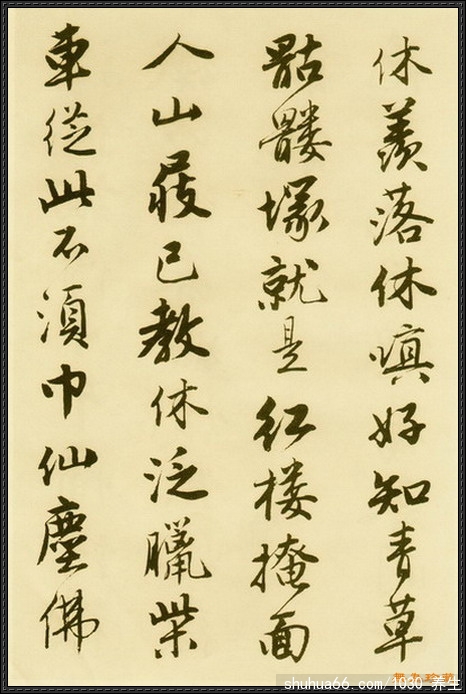 休羨落休嗔好知青草
骷髏塚就是紅樓掩面
人山屐已教休泛臘柴
車從此不須巾仙塵佛
shuhua66.com/1030 养生